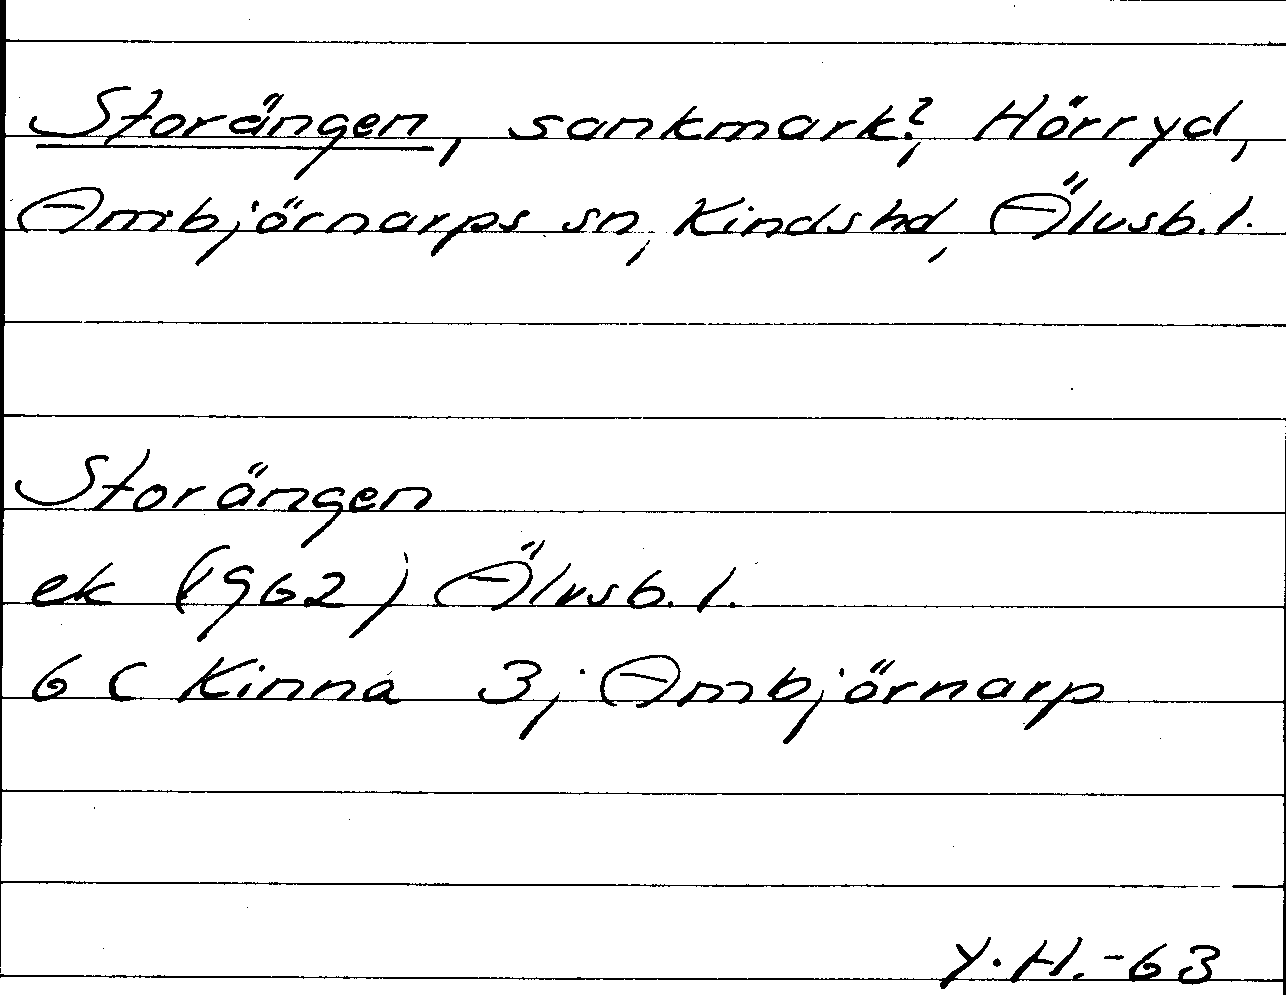 Storängen, sankmark?, Hörryd,
Ambjörnarps sn, Kinds hd, Älvsb. l.
Storängen
ek (1962) Älvsb. l.
6 C Kinna 3; Ambjörnarp
Y. H. -63